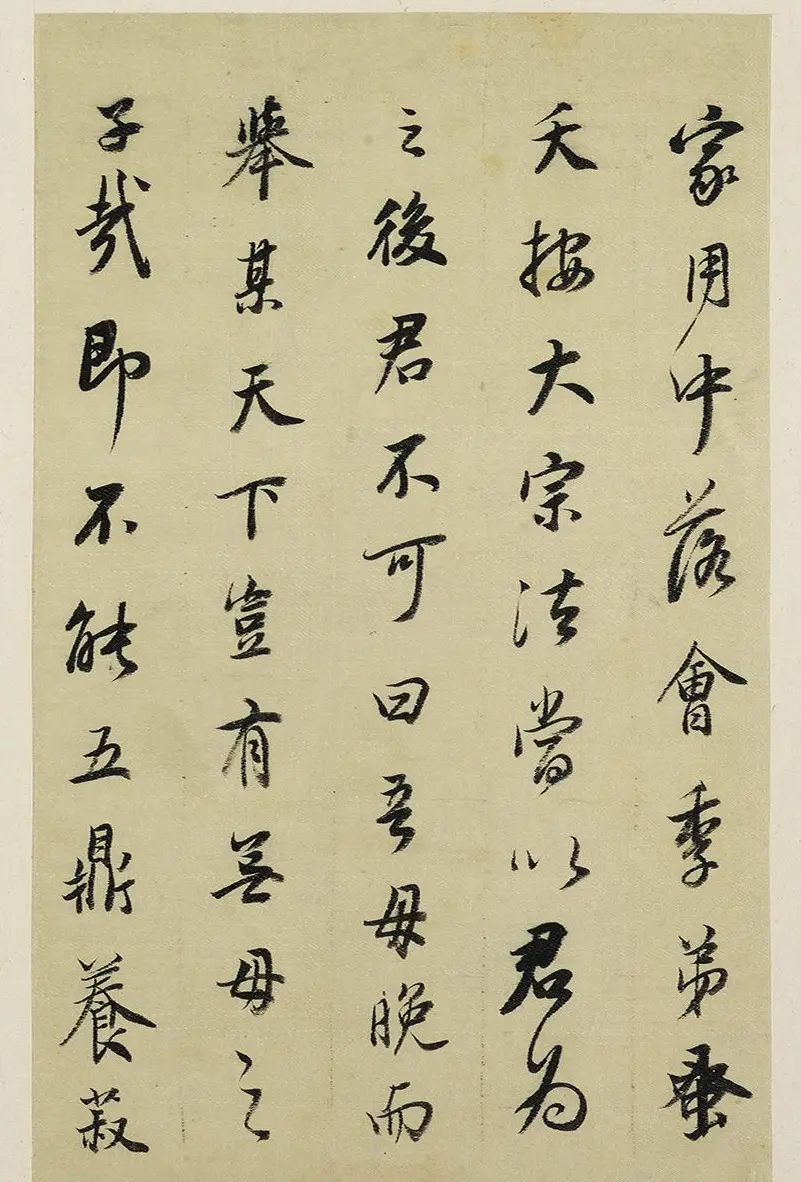 家用中落會季弟蚤
夭按大宗法當以君為
之後君不可曰吾母晚而
舉某天下豈有無母之
子哉即不能五鼎養菽